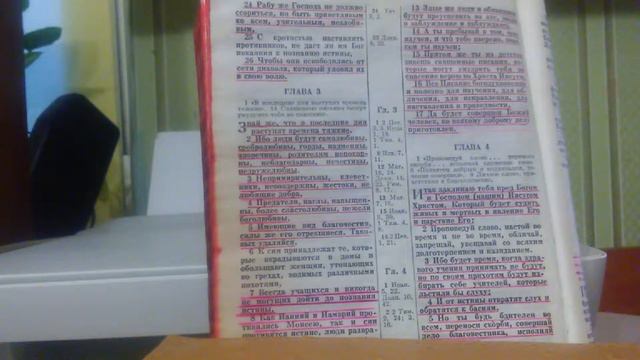 24 Рабу же Господа не должно
ссориться, но быть приветливым
ко всем, учительным, незлоби-
вым,
25 С кротостью наставлять
противников, не даст ли им Бог
покаяния к познанию истины,
26 Чтобы они освободились от
сети диавола, который уловил их
в свою волю.
ГЛАВА 3
1 «В последние дни наступят времена
тяжкие».
Знай же, что в последние дни
наступят времена тяжкие.
2 Ибо люди будут самолюбивы,
сребролюбивы, горды, надменны,
злоречивы, родителям непокор-
ны, неблагодарны, нечестивы,
недружелюбны,
3 Непримирительны, клевет-
ники, невоздержны, жестоки, не
любящие добра,
4 Предатели, наглы, напыщен-
ны, более сластолюбивы, нежели
боголюбивы,
5 Имеющие вид благочестия,
силы же его отрекшиеся. Тако-
вых удаляйся.
6 К сим принадлежат те, кото-
рые вкрадываются в домы и
обольщают женщин, утопающих
во грехах, водимых различными
похотями,
7 Всегда учащихся и никогда
не могущих дойти до познания
истины.
8 Как Ианний и Иамврий про-
тивились Моисею, так и сии
противятся истине, люди
Гл. 3
Гл. 4
13 Злые же люди и обманщики
будут преуспевать во зле, вводя
в заблуждение и заблуждаясь.
14 А ты пребывай в том, чему
научен, и что тебе вверено, зная,
кем ты научен;
15 Притом же ты из детства
знаешь священные писания, ко-
торые могут умудрить тебя во
спасение верою во Христа Иисуса.
16 Все Писание богодухновенно
и полезно для научения, для об-
личения, для исправления, для
наставления в праведности,
17 Да будет совершен Божий
человек, ко всякому доброму делу
приготовлен.
ГЛАВА 4
Итак заклинаю тебя пред Богом
и Господом (нашим) Иисусом
Христом, Который будет судить
живых и мертвых в явление Его и
царствие Его:
2 Проповедуй слово, настой во
время и не во время, обличай,
запрещай, увещевай со всяким
долготерпением и назиданием.
3 Ибо будет время, когда здра-
вого учения принимать не будут,
но по своим прихотям будут из-
бирать себе учителей, которые
льстили бы слуху;
4 И от истины отвратят слух и
обратятся к басням.
5 Но ты будь бдителен во
всем, переноси скорби, совершай
дело благовестника, исполняй